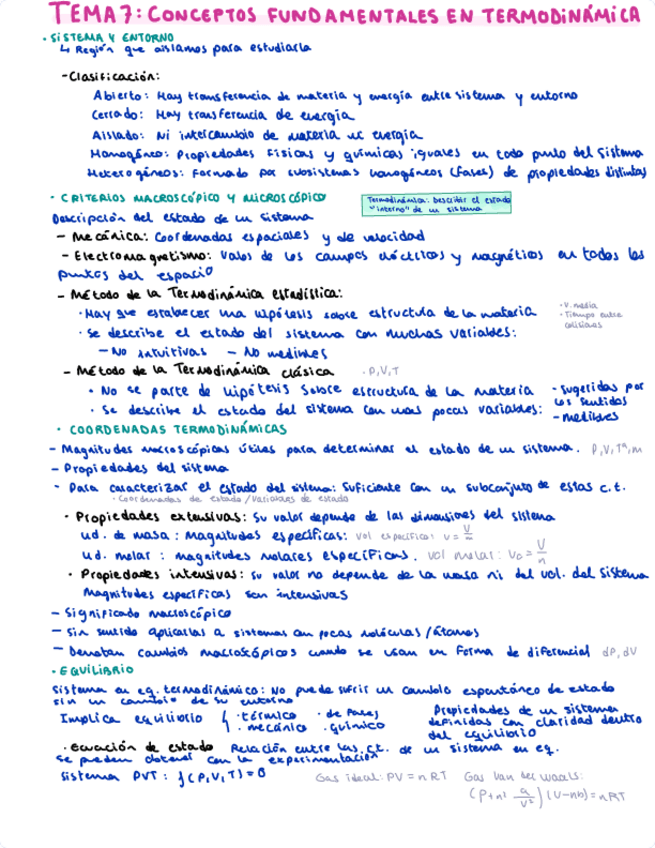 TEMA 7: CONCEPTOS FUNDAMENTALES EN TERMODINÁMICA
· SISTEMA Y ENTORNO
↳ Región que aislamos para estudiarla
- Clasificación:
Abierto: Hay transferencia de materia y energía entre sistema y entorno
Cerrado: Hay transferencia de energía
Aislado: Ni intercambio de materia ni energía
Homogéneo: Propiedades físicas y químicas iguales en todo punto del sistema
Heterogéneos: Formado por subsistemas homogéneos (fases) de propiedades distintas
· CRITERIOS MACROSCÓPICO Y MICROSCÓPICO
Termodinámica: Describir el estado "interno" de un sistema
Descripción del estado de un sistema
- Mecánica: Coordenadas espaciales y de velocidad
- Electromagnetismo: Valos de los campos eléctricos y magnéticos en todos los
puntos del espacio
- Método de la Termodinámica estadística:
· Hay que establecer una hipótesis sobre estructura de la materia
· V. media
· Tiempo entre colisiones
· Se describe el estado del sistema con muchas variables:
- No intuitivas - No medibles
- Método de la Termodinámica clásica · P,V,T
· No se parte de hipótesis sobre estructura de la materia
· Se describe el estado del sistema con unas pocas variables:
- Sugeridas por los sentidos
- medibles
· COORDENADAS TERMODINÁMICAS
- Magnitudes macroscópicas útiles para determinar el estado de un sistema. P,V,Tª,m
- Propiedades del sistema
- Para caracterizar el estado del sistema: suficiente con un subconjunto de estas c.t.
· Coordenadas de estado/Variables de estado
· Propiedades extensivas: Su valor depende de las dimensiones del sistema
ud. de masa: Magnitudes específicas: vol específico: v = V/m
ud. molar: magnitudes molares específicas. vol molar: V₀ = V/n
· Propiedades intensivas: su valor no depende de la masa ni del vol. del sistema
Magnitudes específicas son intensivas
- Significado macroscópico
- Sin sentido aplicarlas a sistemas con pocas moléculas/átomos
- Denotan cambios macroscópicos cuando se usan en forma de diferencial dP, dV
· EQUILIBRIO
Sistema en eq. termodinámico: No puede sufrir un cambio espontáneo de estado
sin un cambio de su entorno
Implica equilibrio { · térmico · de fases
· mecánico · químico
Propiedades de un sistema definidas con claridad dentro del equilibrio
· Ecuación de estado Relación entre las c.t. de un sistema en eq.
se pueden obtener con la experimentación
Sistema PVT: f(P,V,T)=0 Gas ideal: PV = nRT Gas Van der Waals:
(P+n² a/V²)(V-nb)=nRT